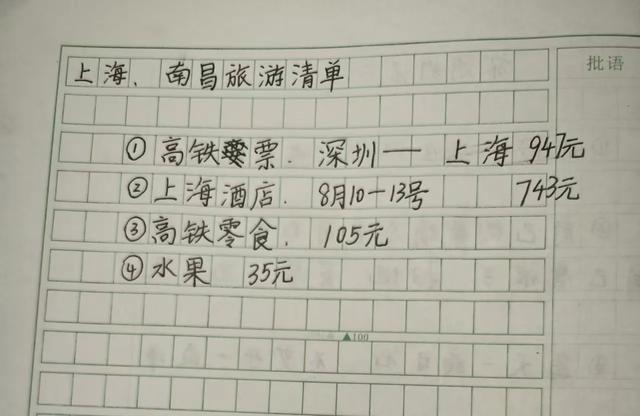 批语
上海、南昌旅游清单
①高铁票. 深圳——上海 947元
②上海酒店. 8月10—13号 743元
③高铁零食. 105元
④水果 35元
▲100